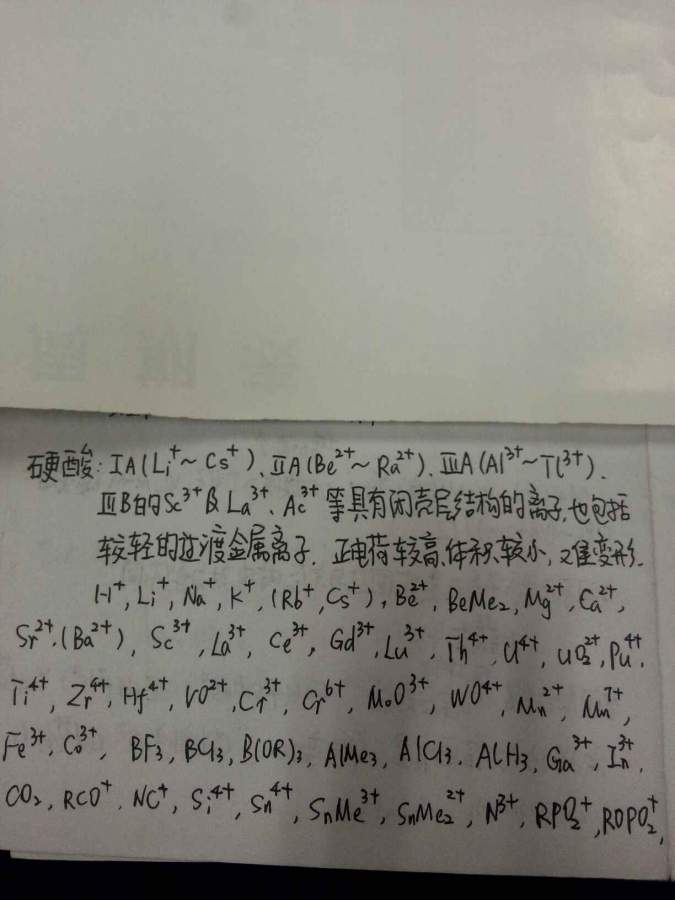 硬酸: IA(Li⁺~Cs⁺)、IIA(Be²⁺~Ra²⁺)、IIIA(Al³⁺~Tl³⁺)、
IIIB的Sc³⁺及La³⁺、Ac³⁺等具有闭壳层结构的离子,也包括
较轻的过渡金属离子. 正电荷较高、体积较小,难变形.
H⁺, Li⁺, Na⁺, K⁺, (Rb⁺, Cs⁺), Be²⁺, BeMe₂, Mg²⁺, Ca²⁺,
Sr²⁺, (Ba²⁺), Sc³⁺, La³⁺, Ce³⁺, Gd³⁺, Lu³⁺, Th⁴⁺, U⁴⁺, UO₂²⁺, Pu⁴⁺,
Ti⁴⁺, Zr⁴⁺, Hf⁴⁺, VO²⁺, Cr³⁺, Cr⁶⁺, MoO³⁺, WO⁴⁺, Mn²⁺, Mn⁷⁺,
Fe³⁺, Co³⁺, BF₃, BCl₃, B(OR)₃, AlMe₃, AlCl₃, AlH₃, Ga³⁺, In³⁺,
CO₂, RCO⁺, NC⁺, Si⁴⁺, Sn⁴⁺, SnMe³⁺, SnMe₂²⁺, N³⁺, RPO₂⁺, ROPO₂⁺,